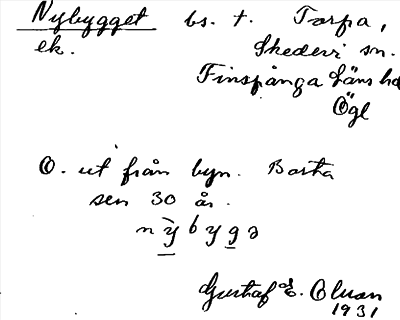 Nybygget bs. t. Torpa,
ek. Skedevi sn.
Finspånga läns hd
Ögl
O. ut från byn. Bosta
sen 30 år.
nỳbygə
Gustaf E. Olson
1931